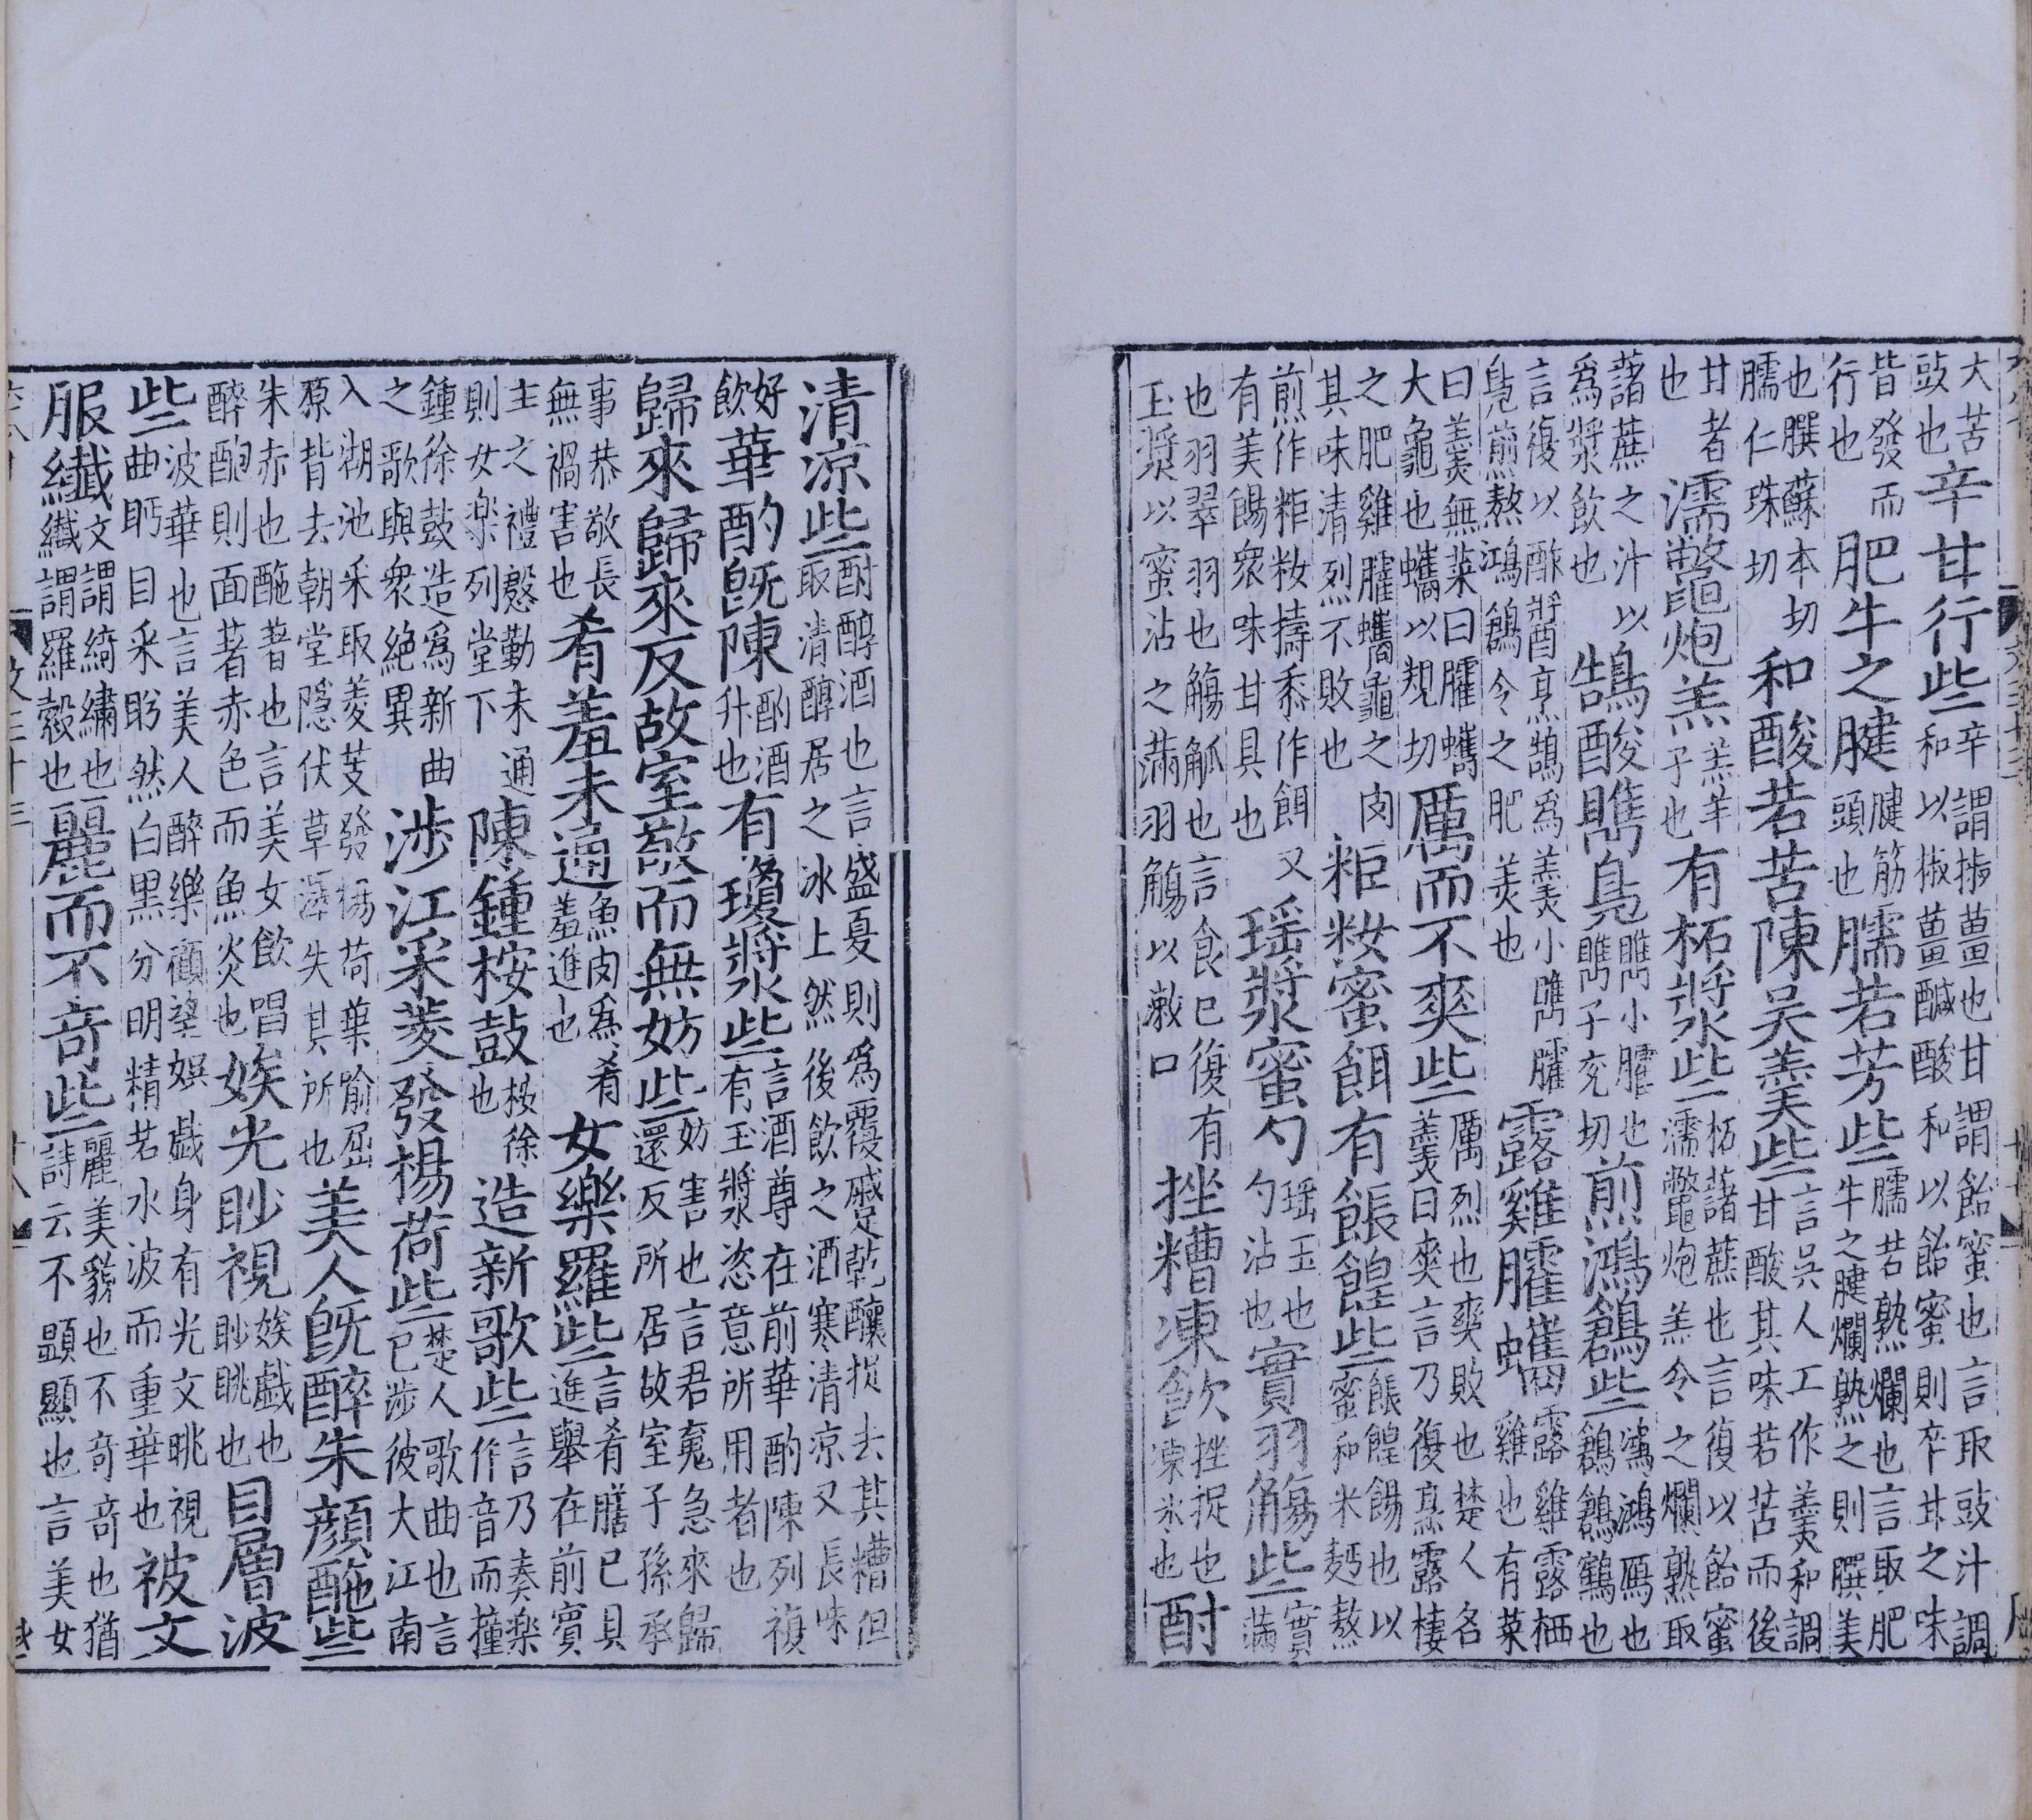 大苦豉也辛甘行些辛謂椒薑也甘謂飴蜜也言取豉汁調和以椒薑鹹酸和以飴蜜則辛甘之味
皆發而行也肥牛之腱腱筋頭也臑若芳些臑若熟爛也言取肥牛之腱爛熟之則𦠆美
也𦠆蘇本切臑仁珠切和酸若苦陳吳羹些言吳人工作羹和調甘酸其味若苦而後
甘者也濡鼈炮羔羔羊子也有柘漿些柘藷蔗也言復以飴蜜濡鼈炮羔令之爛熟取
藷蔗之汁以為漿飲也鵠酸臇鳧臇小臛也臇子兖切煎鴻鶬些鴻鴻鴈也鶬鶬鶴也
言復以酢醬烹鵠為羹小臇臛鳧煎熬鴻鶬令之肥美也露雞臛蠵露雞露栖雞也有菜
曰羹無菜曰臛蠵大龜也蠵以規切厲而不爽些厲烈也爽敗也楚人名羹曰爽言乃復烹露棲
之肥雞臛蠵龜之肉其味清烈不敗也粔籹蜜餌有餦餭些餦餭餳也以蜜和米麪熬
煎作粔籹擣黍作餌又有美餳衆味甘具也瑶漿蜜勺瑶玉也勺沾也實羽觴些實滿
也羽翠羽也觴觚也言食已復有玉漿以蜜沾之滿羽觴以漱口挫糟凍飲挫捉也凍氷也酎
清涼些酎醇酒也言盛夏則為覆蹙乾釀捉去其糟但取清醇居之冰上然後飲之酒寒清涼又長味
好飲華酌旣陳酌酒升也有瓊漿些言酒尊在前華酌陳列複有玉漿恣意所用者也
歸來歸來反故室敬而無妨些妨害也言君魂急來歸還反所居故室子孫承
事恭敬長無禍害也肴羞未通魚肉為肴羞進也女樂羅些言肴膳已具進舉在前賓
主之禮慇勤未通則女樂列堂下陳鍾桉鼓桉徐也造新歌些言乃奏樂作音而撞
鍾徐鼓造為新曲之歌與衆絶異涉江采菱發楊荷些楚人歌曲也言已涉彼大江南
入湖池采取菱芰發楊荷葉喻屈原背去朝堂隱伏草澤失其所也美人旣醉朱顔酡些
朱赤也酡著也言美女飲唱醉酡則面著赤色而魚炎也娭光眇視娭戱也眇眺也目曾波
些波華也言美人醉樂顧望娛戱身有光文眺視曲眄目采盻然白黑分明精若水波而重華也被文
服纖文謂綺繡也纖謂羅縠也麗而不竒些麗美貌也不竒竒也猶詩云不顯顯也言美女